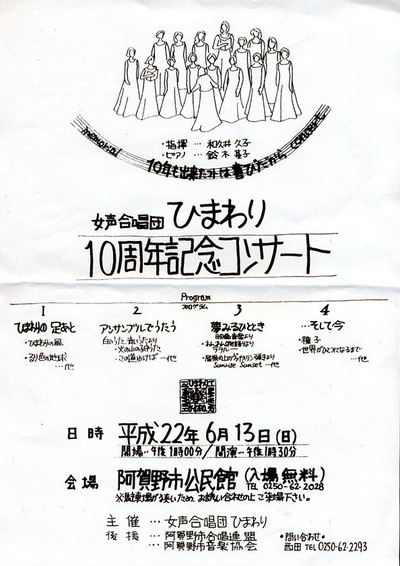 memorial
concert
・指揮 … 和久井 久子
・ピアノ … 鈴木 基子
女声合唱団 ひまわり
10周年記念コンサート
Program
プログラム
1
ひまわりの足あと
・ひまわりの風
・るり色の地球
…他
2
アンサンブルでうたう
・この道ゆけば …他
3
夢みるひととき
・屋根の上のヴァイオリン弾きより
Sunrise Sunset …他
4
…そして今
・種子
・世界がひとつになるまで
…他
日時 平成22年6月13日(日)
開場…午後1時00分/開演…午後1時30分
会場 阿賀野市公民館(入場無料)
TEL 0250-62-2028
※駐車場が狭いため、お誘い合わせの上ご来場下さい。
主催 … 女声合唱団 ひまわり
後援 … 阿賀野市合唱連盟
… 阿賀野市音楽協会
・問い合わせ・
西田 TEL 0250-62-2293